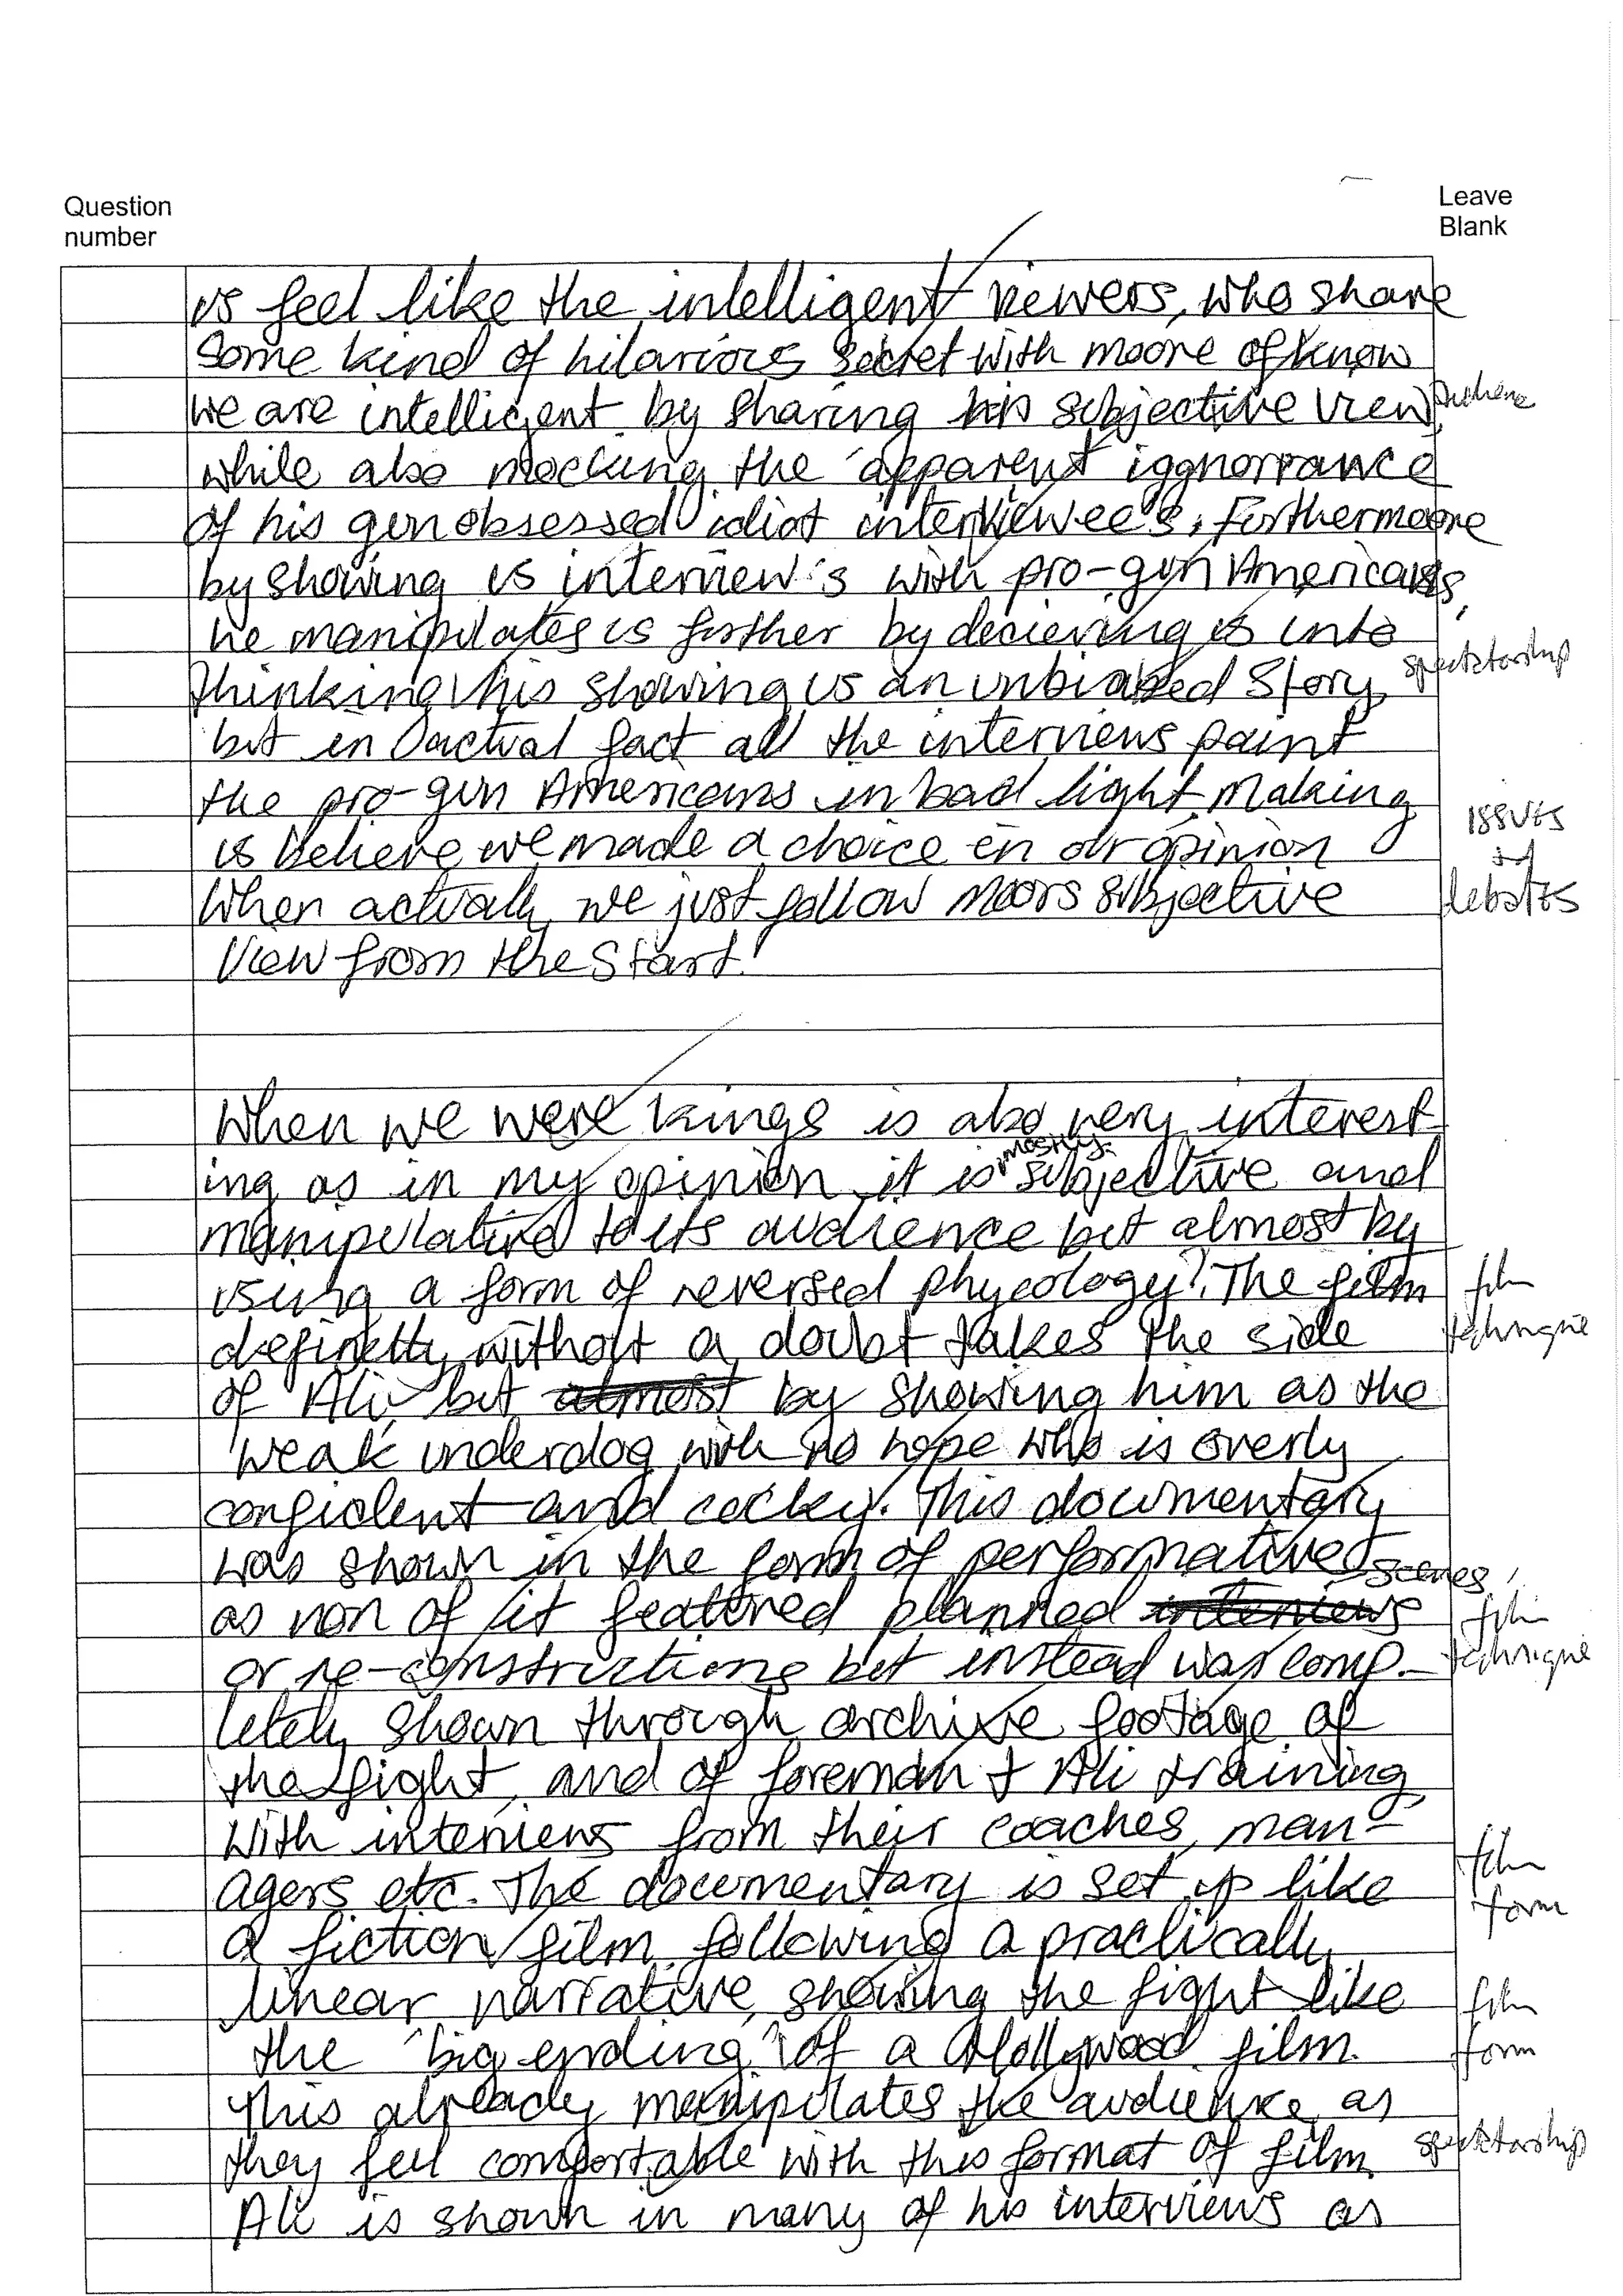 Question
number
Leave
Blank
us feel like the intelligent viewers, who share
some kind of hilarious secret with moore of know
we are intelligent by sharing his subjective view,
Audience
while also mocking the 'apparent' iggnorrance
of his gun obsessed idiot interviewee's, furthermoore
by showing us interview's with pro-gun Americans,
he manipulates us further by decieving us into
spectatorship
thinking his showing us an unbiased story,
but in actual fact all the interviews paint
the pro-gun Americans in bad light making
issues
and
debates
us believe we made a choice in our opinion
when actually we just follow Moors subjective
view from the start!
When we were kings is also very interest-
ing as in my opinion it is mostly subjective and
manipulative to its audience but almost by
using a form of reversed phycology?. The film
film
technique
definetly without a doubt takes the side
of Ali, but almost by showing him as the
weak underdog with no hope who is overly
confident and cocky. This documentary
was shown in the form of performative scenes,
as non of it featured planned interviews
film
technique
or re-constructions but instead was comp-
letely shown through archive footage of
the fight, and of foreman + Ali training,
with interviews from their coaches, man-
agers etc. The documentary is set up like
film
form
a fiction film following a practically
linear narrative, showing the fight like
film
form
the "big ending" of a Hollywood film.
This already manipulates the audience, as
they feel comfortable with this format of film.
spectatorship
Ali is shown in many of his interviews as